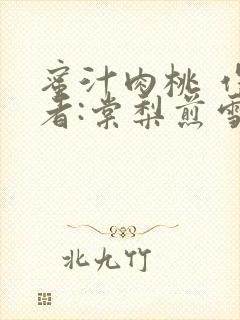 蜜汁肉桃
者:棠梨煎雪
北九竹